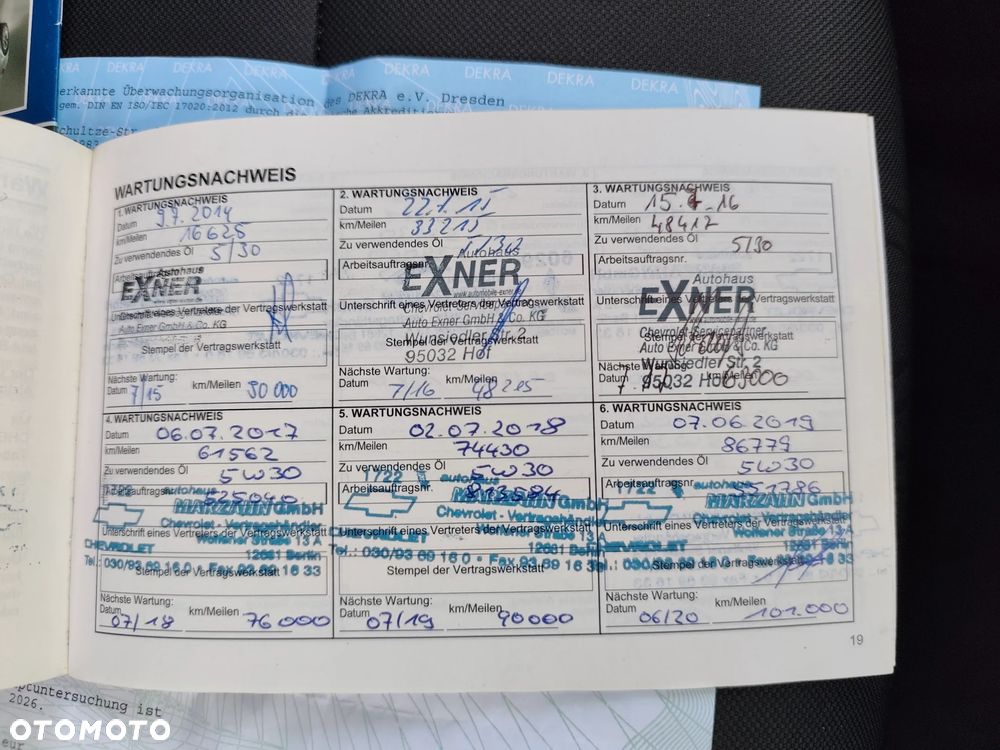 DEKRA DEKRA DEKRA DEKRA DEKRA DEKRA
erkannte Überwachungsorganisation des DEKRA e.V. Dresden
gem. DIN EN ISO/IEC 17020:2012 durch die
WARTUNGSNACHWEIS
1. WARTUNGSNACHWEIS
Datum 9.7.2014
km/Meilen 16625
Zu verwendetes Öl 5/30
Arbeitsauftragsnr.
Autohaus
EXNER
Auto Exner GmbH & Co. KG
Stempel der Vertragswerkstatt
Nächste Wartung:
Datum 7/15 km/Meilen 30 000
2. WARTUNGSNACHWEIS
Datum 22.7.15
km/Meilen 33215
Zu verwendendes Öl
Arbeitsauftragsnr.
Autohaus
EXNER
Unterschrift eines Vertreters der Vertragswerkstatt
Auto Exner GmbH & Co. KG
Stempel der Vertragswerkstatt
Wunsiedler Str. 2
95032 Hof
Nächste Wartung:
Datum 7/16 km/Meilen 48215
3. WARTUNGSNACHWEIS
Datum 15.7.16
km/Meilen 48417
Zu verwendendes Öl 5/30
Arbeitsauftragsnr.
Autohaus
EXNER
Unterschrift eines Vertreters der Vertragswerkstatt
Chevrolet-Servicepartner
Auto Exner GmbH & Co. KG
Stempel der Vertragswerkstatt
Wunsiedler Str. 2
95032 Hof
Nächste Wartung:
Datum km/Meilen
4. WARTUNGSNACHWEIS
Datum 06.07.2017
km/Meilen 61562
Zu verwendendes Öl 5W30
Arbeitsauftragsnr. 825040
1722 autohaus
MARZAHN GmbH
Chevrolet - Vertragshändler
Unterschrift eines Vertreters der Vertragswerkstatt
Wolfener Straße 13 A
CHEVROLET 12681 Berlin
Tel.: 030/93 69 16 0 • Fax 93 69 16 33
Stempel der Vertragswerkstatt
Nächste Wartung:
Datum 07/18 km/Meilen 76000
5. WARTUNGSNACHWEIS
Datum 02.07.2018
km/Meilen 74430
Zu verwendendes Öl 5W30
Arbeitsauftragsnr. 813584
1722 autohaus
MARZAHN GmbH
Chevrolet - Vertragshändler
Unterschrift eines Vertreters der Vertragswerkstatt
Wolfener Straße 13 A
12681 Berlin
Tel.: 030/93 69 16 0 • Fax 93 69 16 33
Stempel der Vertragswerkstatt
Nächste Wartung:
Datum 07/19 km/Meilen 90000
6. WARTUNGSNACHWEIS
Datum 07.06.2019
km/Meilen 86779
Zu verwendendes Öl 5W30
Arbeitsauftragsnr. 851786
1722 autohaus
MARZAHN GmbH
Chevrolet - Vertragshändler
Unterschrift eines Vertreters der Vertragswerkstatt
Wolfener Straße 13 A
CHEVROLET 12681 Berlin
Tel.: 030/93 69 16 0 • Fax 93 69 16 33
Stempel der Vertragswerkstatt
Nächste Wartung:
Datum 06/20 km/Meilen 101.000
19
ptuntersuchung ist
2026.
OTOMOTO